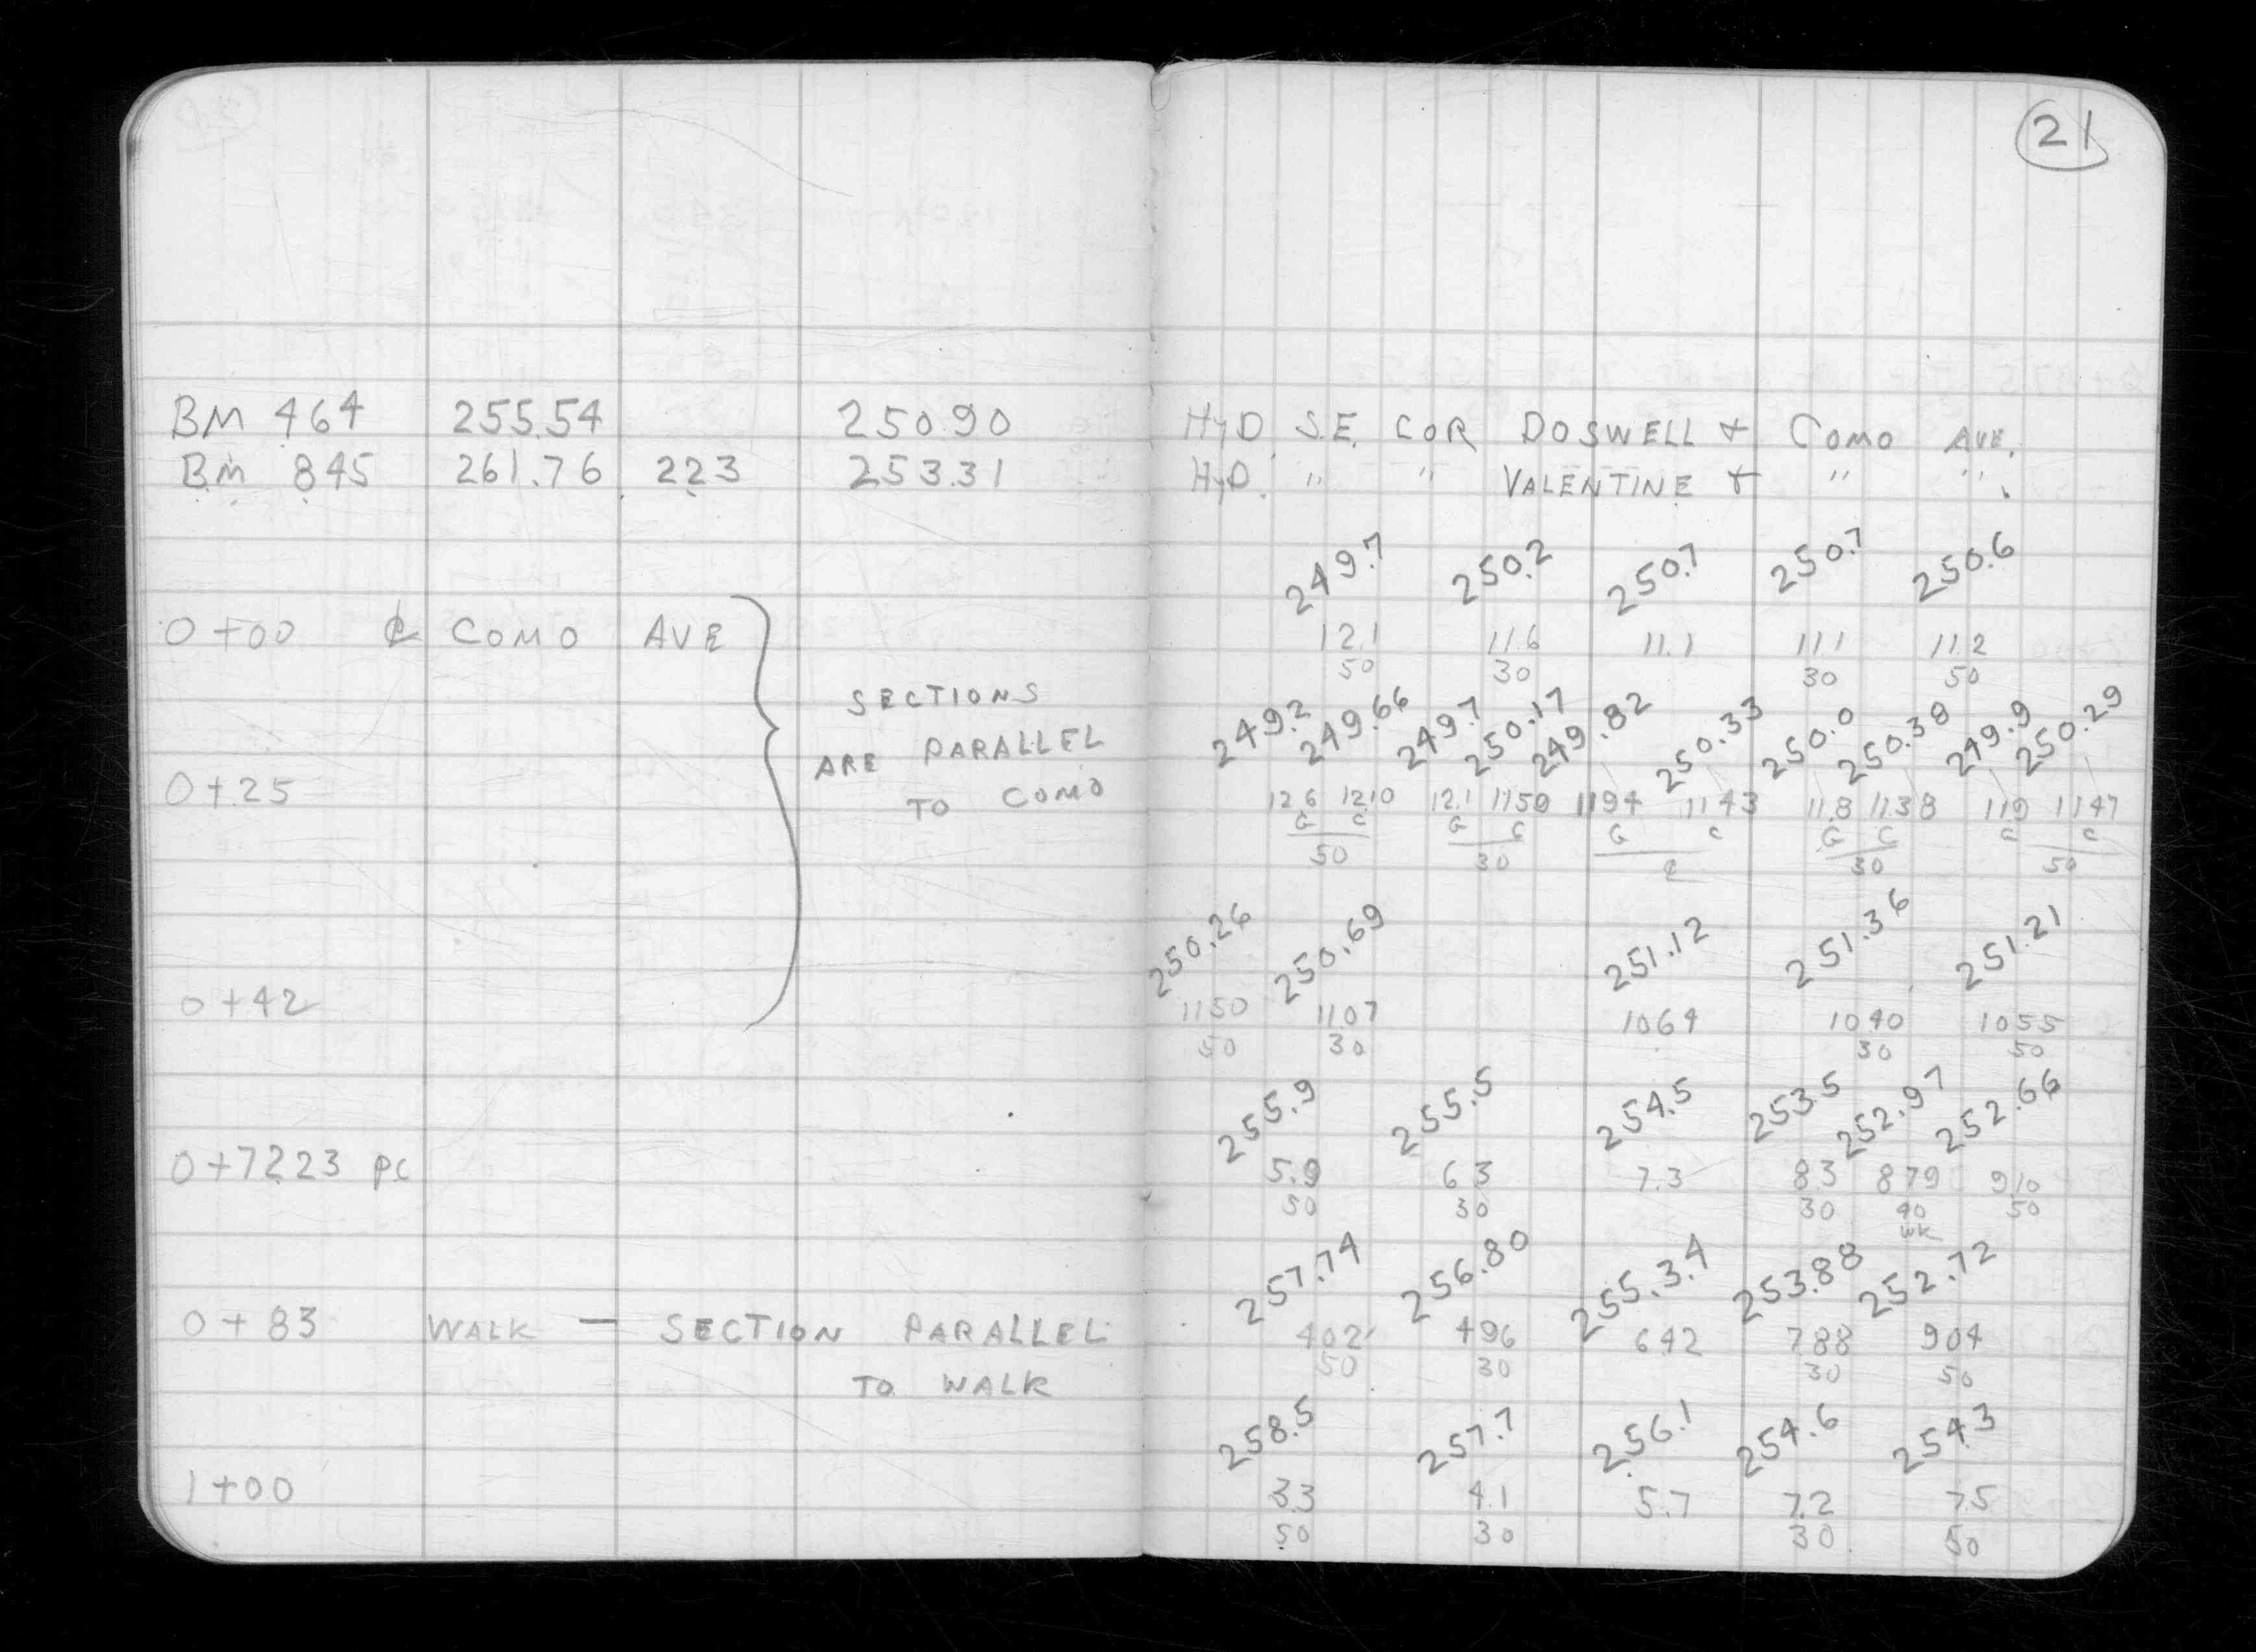 21
BM 464 255.54 250.90 HYD. S.E. COR DOSWELL + COMO AVE.
BM 845 261.76 223 253.31 HYD. " " VALENTINE + " "
249.7 250.2 250.7 250.7 250.6
0+00 ₵ COMO AVE 12.1 11.6 11.1 11.1 11.2
50 30 30 50
SECTIONS
ARE PARALLEL
TO COMO
249.2 249.66 249.7 250.17 249.82 250.33 250.0 250.38 249.9 250.29
0+25 12.6 1210 12.1 1159 1194 1143 11.8 1138 119 1147
G C G C G C G C G C
50 30 ₵ 30 50
250.26 250.69 251.12 251.36 251.21
0+42 1150 1107 1064 1040 1055
50 30 30 50
255.9 255.5 254.5 253.5 252.97 252.66
0+7223 PC 5.9 63 7.3 83 879 910
50 30 30 40 50
WK
257.74 256.80 255.34 253.88 252.72
0+83 WALK — SECTION PARALLEL 402 496 642 788 904
TO WALK 50 30 30 50
258.5 257.7 256.1 254.6 254.3
1+00 3.3 4.1 5.7 7.2 7.5
50 30 30 50